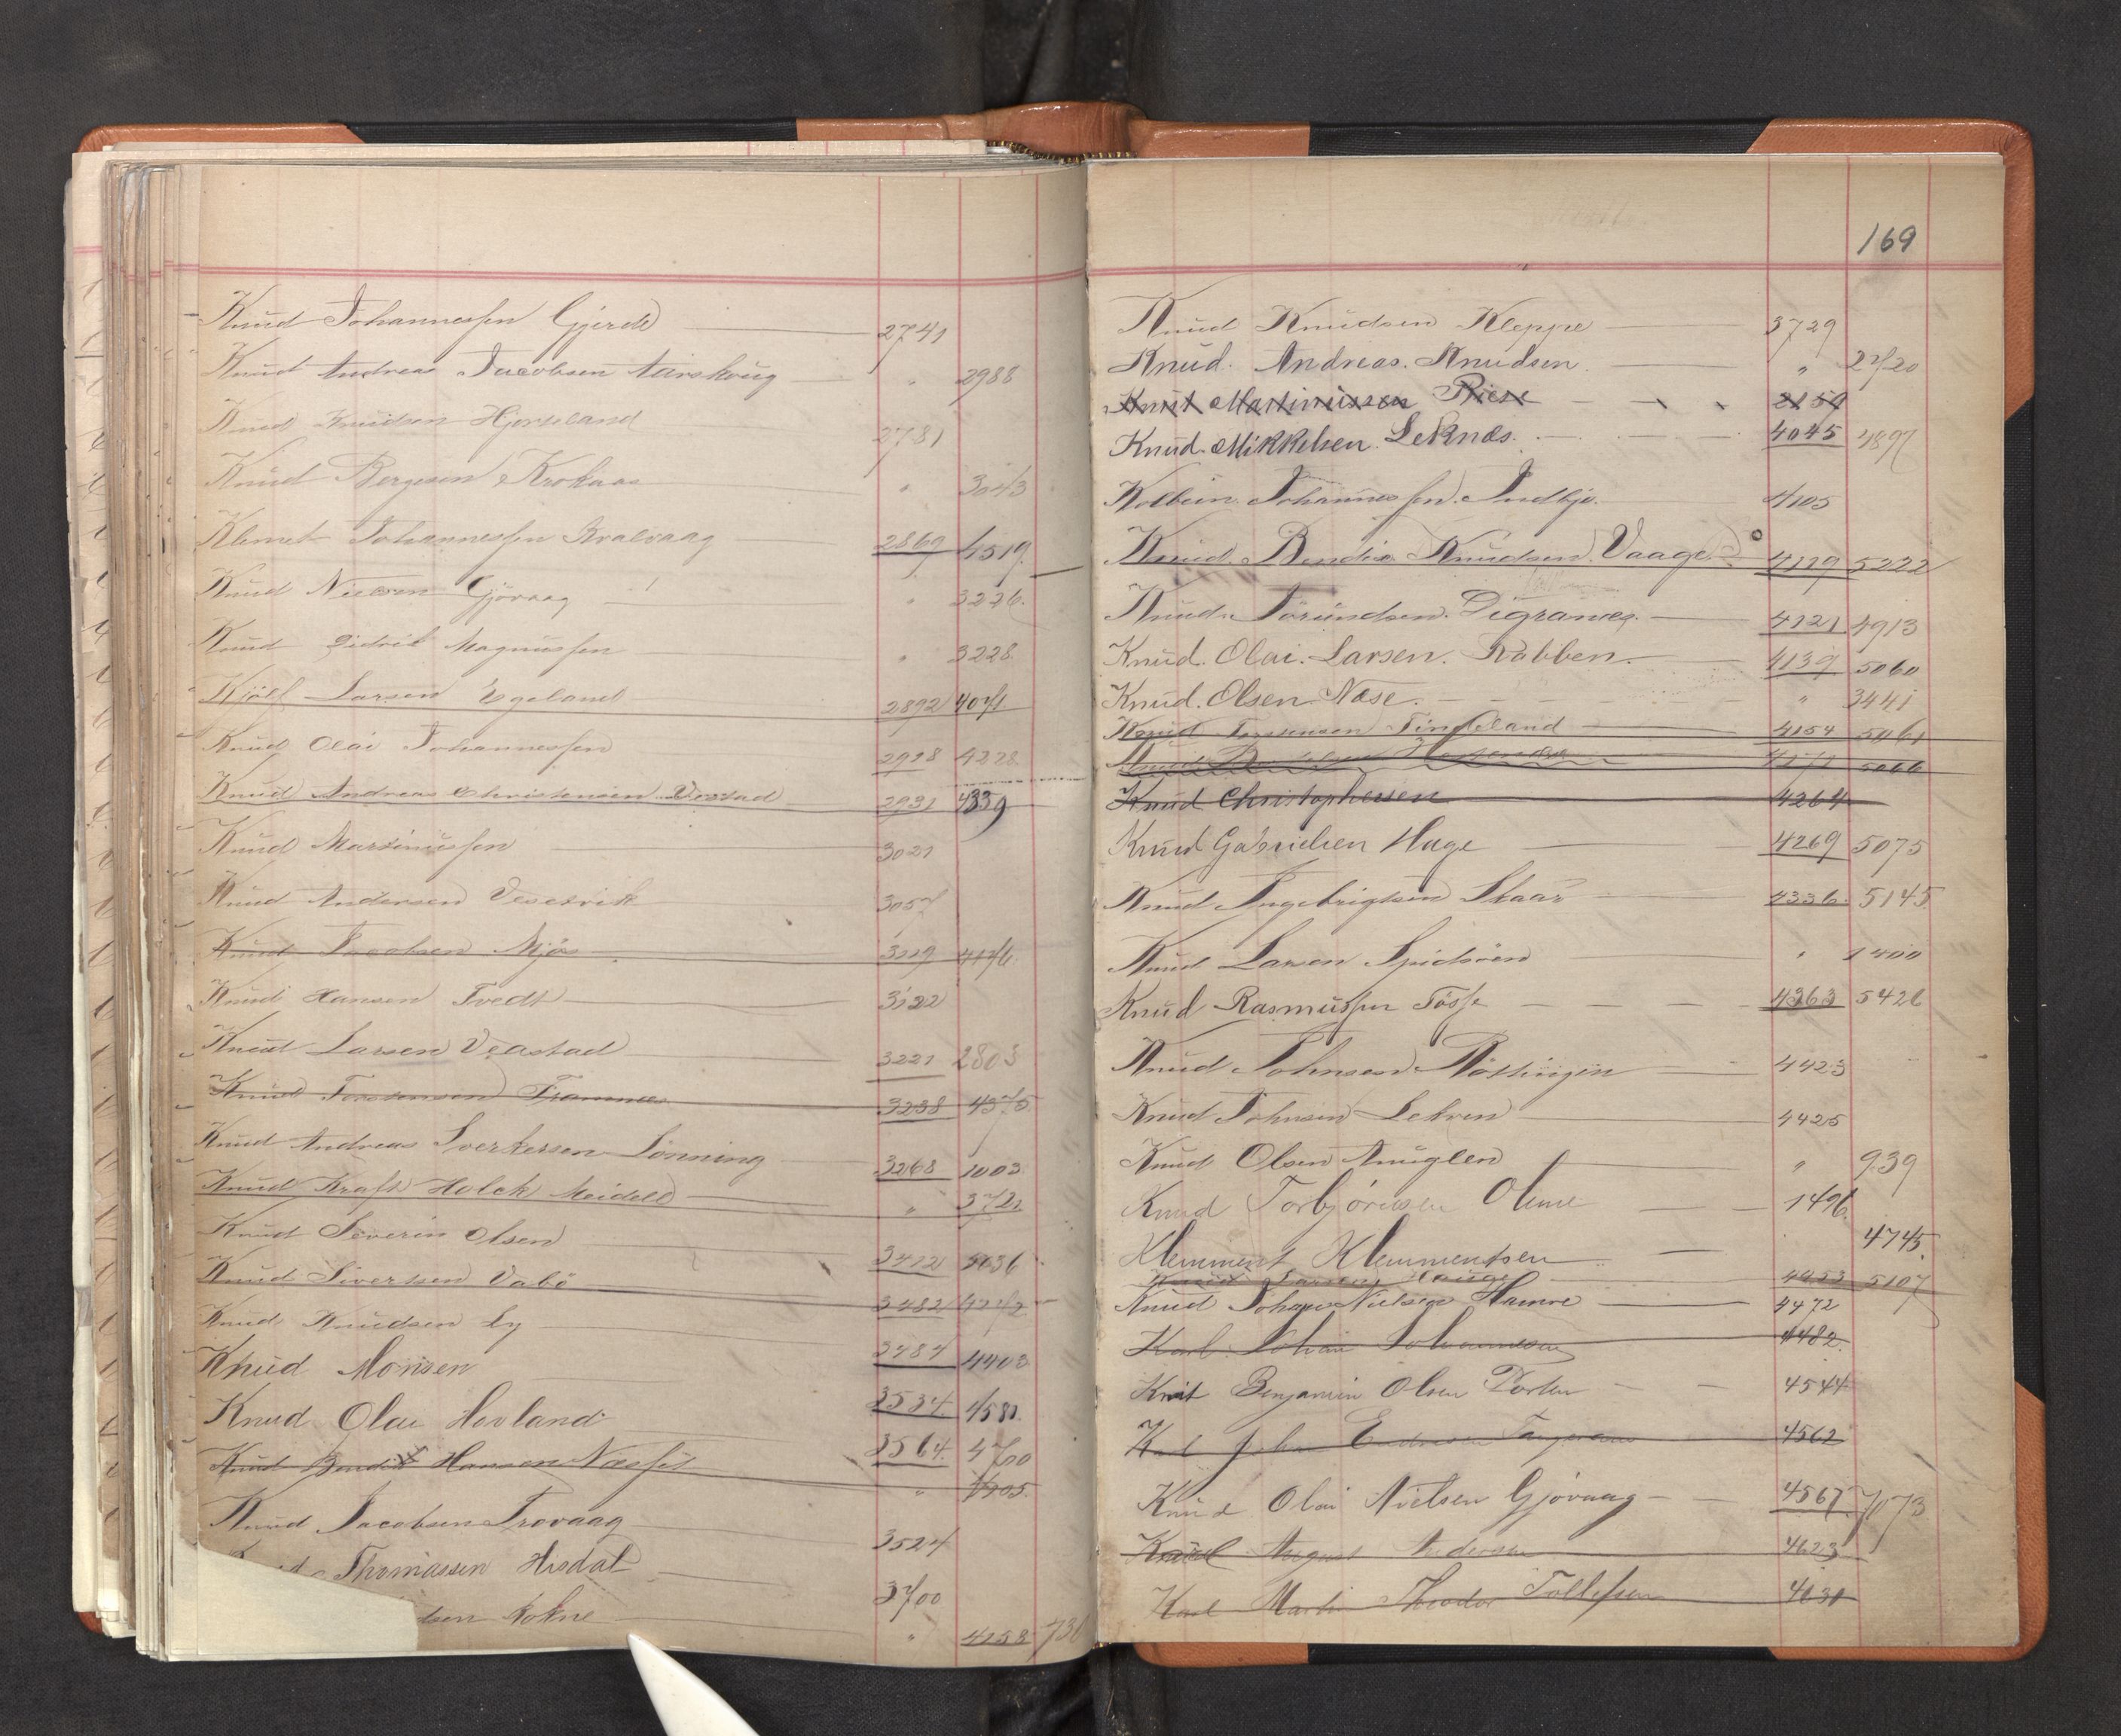 Knud Johannessen Gjerde 2741
Knud Andreas Jacobsen Aarskoug " 2988
Knud Knudsen Hjorteland 2781
Knud Bergesen Krokaas " 3043
Klemet Johannessen Kvalvaag 2869 4519
Knud Nielsen Gjøvaag " 3226.
Knud Didrik Magnussen " 3228
Larsen Egeland 2892 4071
Knud Olai Johannessen 2918 4228
Knud Andreas Christensen Vestad 2931 4339
Knud Martinussen 3021
Knud Andersen 3057
Knud Jacobsen Mjøs 3119 4176
Knud Hansen Tvedt 3122
Knud Larsen Veastad 3221 2803
Knud Torstensen Framnes 3238 4375
Knud Andreas Sverkersen Lønning 3268 1003
Knud Kraft Holck Meidell " 3721
Knud Severin Olsen 3412 5036
Knud Sivertsen Vabø 3482
Knud Knudsen By 3484 4403
Knud Monsen 3534. 4581.
Knud Olai Hovland 3564. 4700
Knud Bendix Hansen " 4705.
Knud Jacobsen Trovaag 3524
Thomassen Hisdal 3700
" 4158 731
169
Knud Knudsen Kleppe 3729
Knud. Andreas. Knudsen. " 2720
Knut Martinussen 2154
Knud. Mikkelsen. Leknes. 4045 4897
Kolbein. Johannessen. Indbjo. 4105
Knud. Bendix Knudsen. Vaage. 4119 5222
Knud. Jørundsen. Digranes. 4121 4913
Knud. Olai. Larsen. Rabben. 4139 5060
Knud. Olsen Nose. " 3441
Knud Torstensen 4154 5061
4171 5066
Knud Christophersen 4264
Knud Gabrielsen Hage 4269 5075
Knud Ingebrigtsen Skaar 4336. 5145
Knud Larsen Spidsøen " 1400
Knud Rasmussen Tøsse 4363 5426
Knud Johnsen 4423
Knud Johnsen Lekven 4425
Knud Olsen Anuglen " 939
Knud Torbjørnsen Olune 1496.
Klemment Klemmentsen 4745.
Knud Larsen Hauge 4953 5107
Knud Johan Nielsen Hamre 4472
Karl Johan Johannesen 4482.
Knut Benjamin Olsen 4544
Karl Johan Endresen 4562
Knud Olai Nielsen Gjøvaag 4567 7073
Karl August Andersen 4623
Karl Martin Theodor Tollefsen 4631